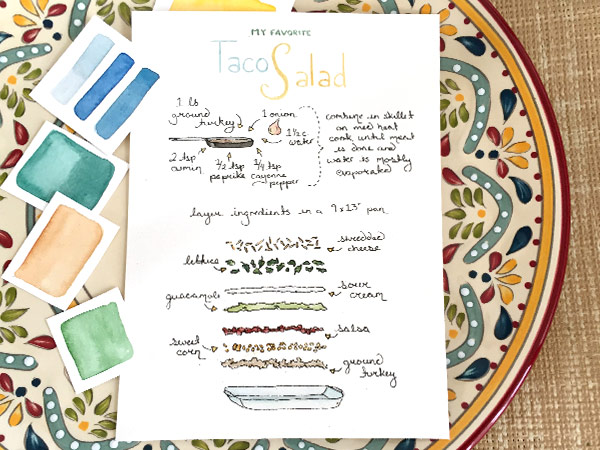 MY FAVORITE
Taco Salad
1 lb
ground
turkey
1 onion
1½ c
water
2 tsp
cumin
½ tsp
paprika
¼ tsp
cayenne
pepper
combine in skillet
on med heat
cook until meat
is done and
water is mostly
evaporated
layer ingredients in a 9x13" pan
shredded
cheese
lettuce
sour
cream
guacamole
salsa
sweet
corn
ground
turkey